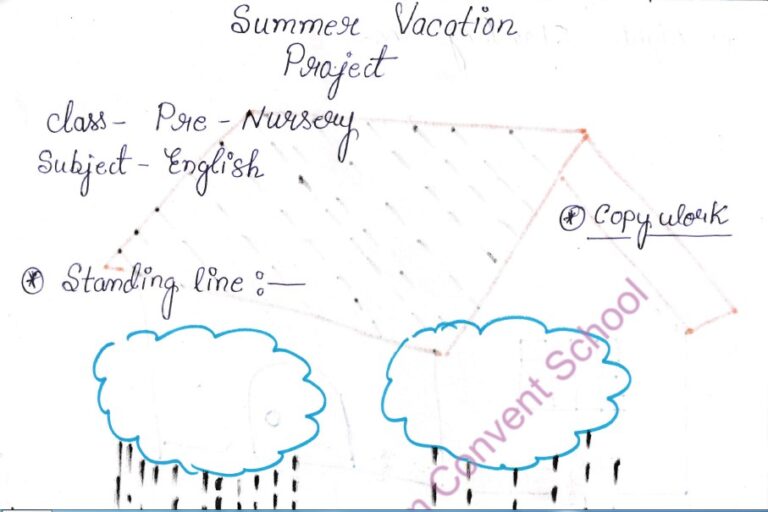 Summer Vacation
Project
class- Pre-Nursery
Subject- English
Copy work
Standing line :-
Convent School